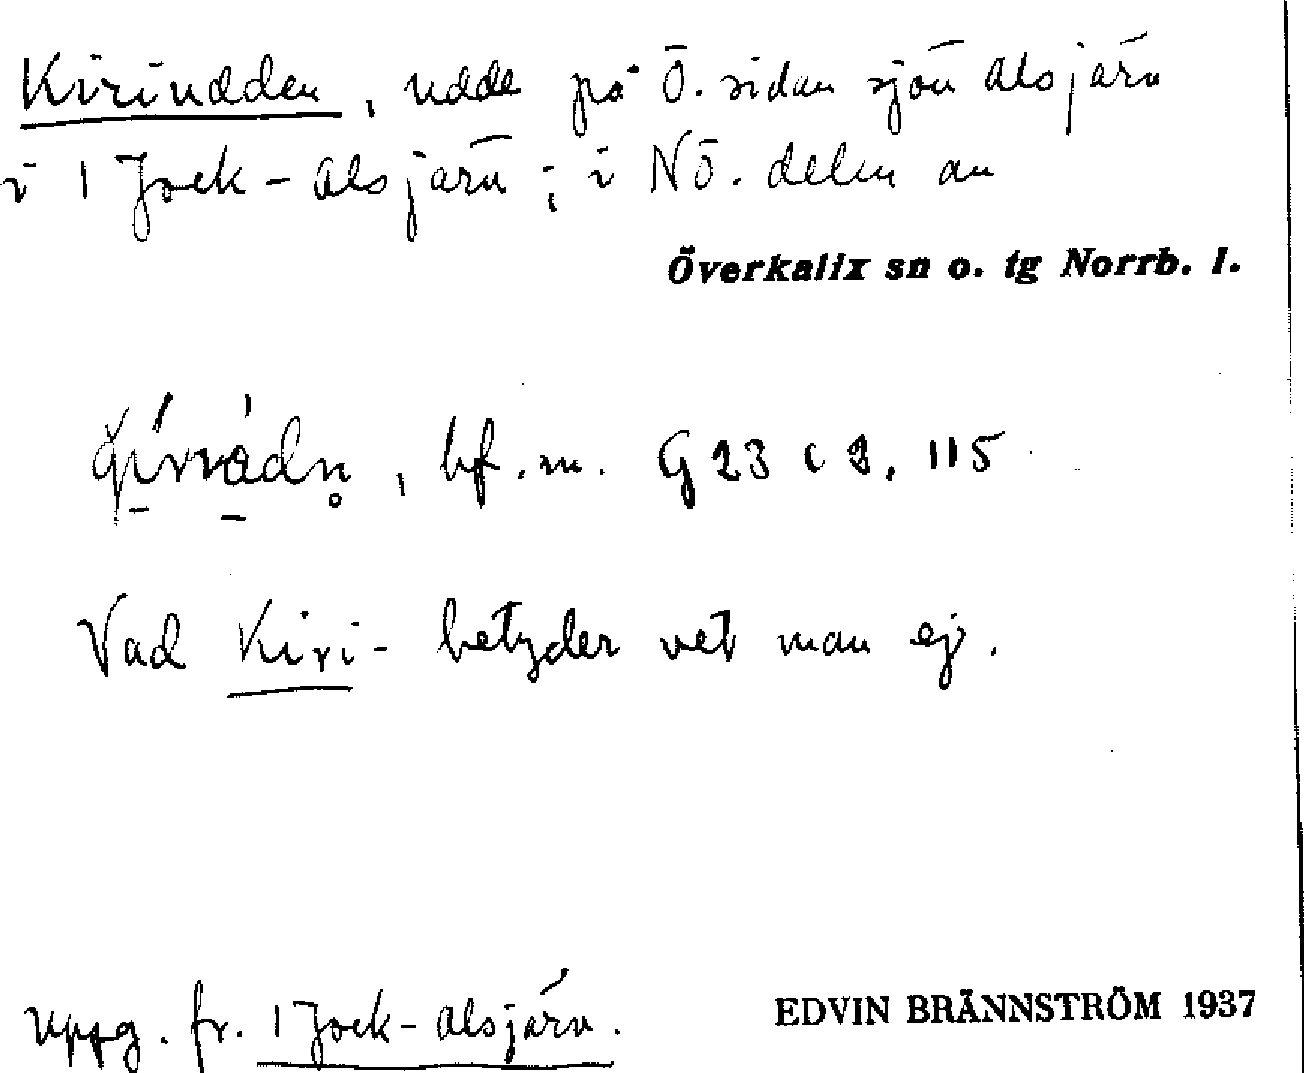 Kiriudden, udde på Ö. sidan sjön Alsjärv
i 1 Jock-Alsjärv; i NÖ. delen av
Överkalix sn o. tg Norrb. l.
, bf. m. G 23 c 2. 115
Vad Kiri- betyder vet man ej.
Uppg. fr. 1 Jock-Alsjärv.
EDVIN BRÄNNSTRÖM 1937